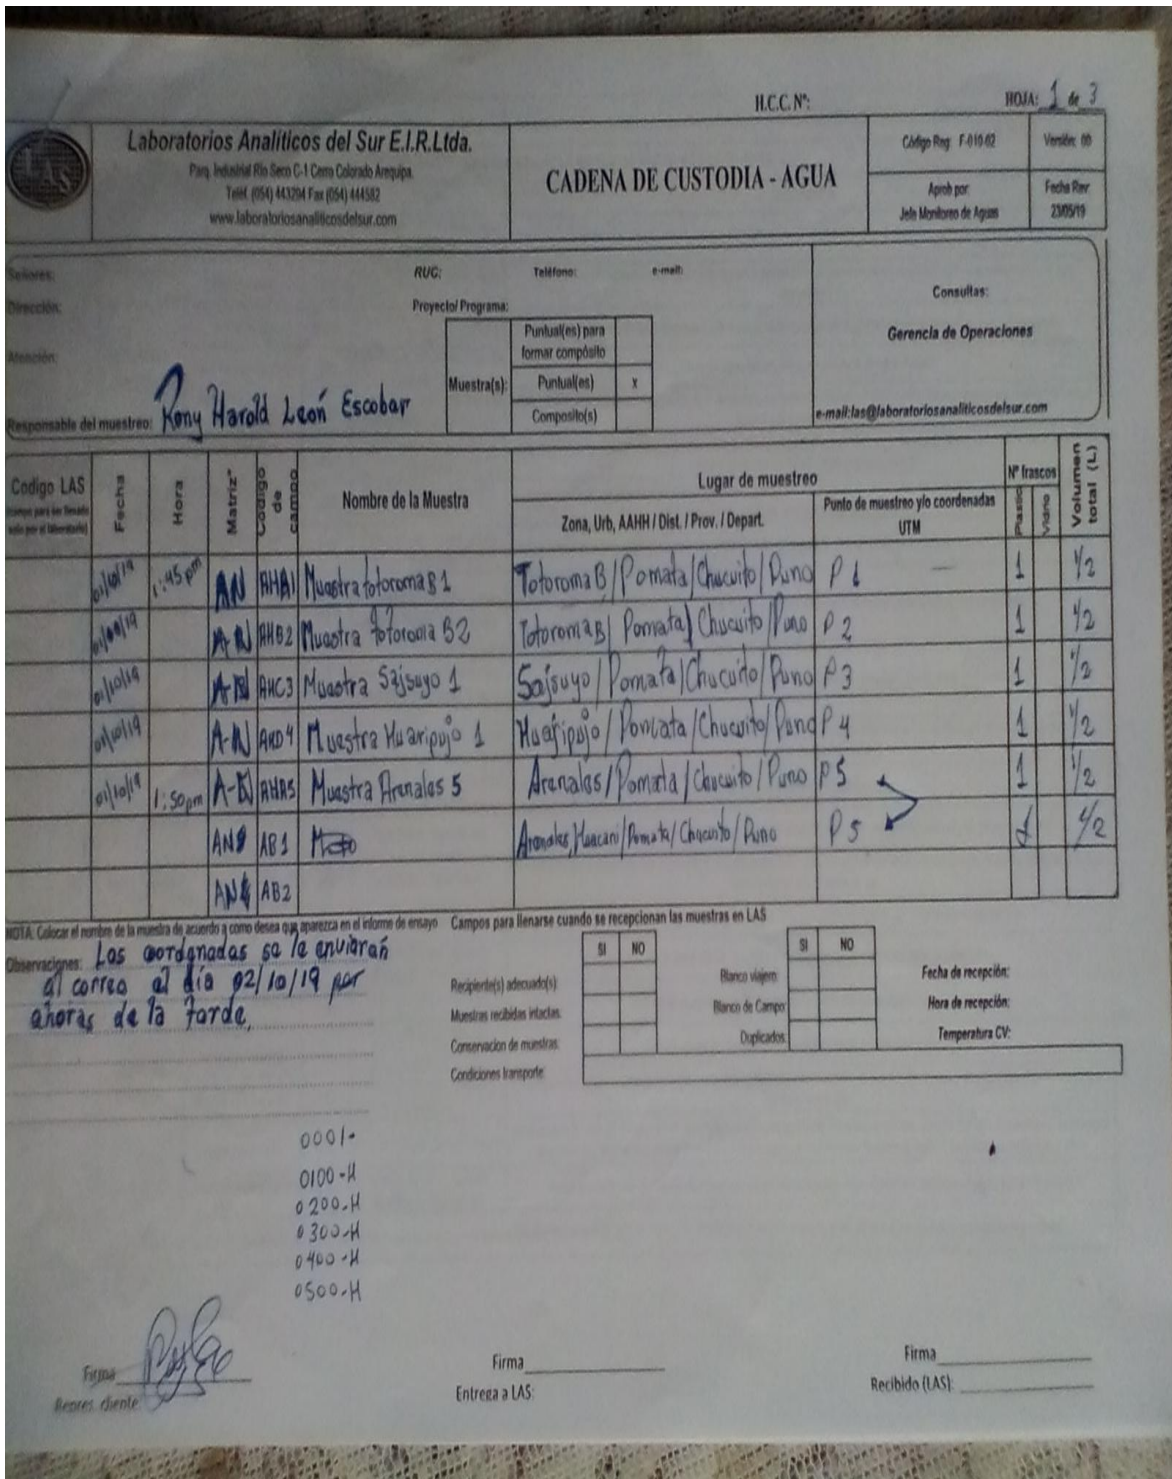 H.C.C. Nº: HOJA: 1 de 3
LAS
Laboratorios Analíticos del Sur E.I.R.Ltda.
Parq. Industrial Río Seco C-1 Cerro Colorado Arequipa.
Teléf. (054) 443294 Fax (054) 444582
www.laboratoriosanaliticosdelsur.com
CADENA DE CUSTODIA - AGUA
Código Reg: F-010-02 Versión: 00
Aprob por: Jefe Monitoreo de Aguas
Fecha Rev: 23/05/19
Señores: RUC: Teléfono: e-mail:
Dirección: Proyecto/ Programa:
Atención:
Responsable del muestreo: Rony Harold León Escobar
Muestra(s):
Puntual(es) para formar compósito
Puntual(es) x
Composito(s)
Consultas:
Gerencia de Operaciones
e-mail:las@laboratoriosanaliticosdelsur.com
Codigo LAS Fecha Hora Matriz* Código de campo Nombre de la Muestra Lugar de muestreo Nº frascos Volumen total (L)
Zona, Urb, AAHH / Dist. / Prov. / Depart. Punto de muestreo y/o coordenadas UTM Plastico Vidrio
01/10/19 1:45 pm AN AHA1 Muestra totoroma B 1 Totoroma B/Pomata/Chucuito/Puno P 1 — 1 1/2
A-N AHB2 Muestra totoroma B2 Totoroma B/ Pomata/ Chucuito/Puno P 2 1 1/2
01/10/19 A-N AHC3 Muestra Sajsuyo 1 Sajsuyo/Pomata/Chucuito/Puno P3 1 1/2
01/10/19 A-N AHD4 Muestra Huaripujo 1 Huaripujo/Pomata/Chucuito/Puno P 4 1 1/2
01/10/19 1:50pm A-N AHA5 Muestra Arenales 5 Arenales/Pomata/Chucuito/Puno P5 1 1/2
AB1 Arenales, Huacani/Pomata/Chucuito/Puno P 5 1/2
AB2
NOTA: Colocar el nombre de la muestra de acuerdo a como desea que aparezca en el informe de ensayo
Observaciones: Las coordenadas se le enviarán
al correo al día 02/10/19 por
ahoras de la tarde,
Campos para llenarse cuando se recepcionan las muestras en LAS
SI NO SI NO
Recipiente(s) adecuado(s) Blanco viajero: Fecha de recepción:
Muestras recibidas intactas: Blanco de Campo: Hora de recepción:
Conservacion de muestras: Duplicados: Temperatura CV:
Condiciones transporte:
0001-
0100-H
0200-H
0300-H
0400-H
0500-H
Firma
Repres. cliente
Firma
Entrega a LAS:
Firma
Recibido (LAS):